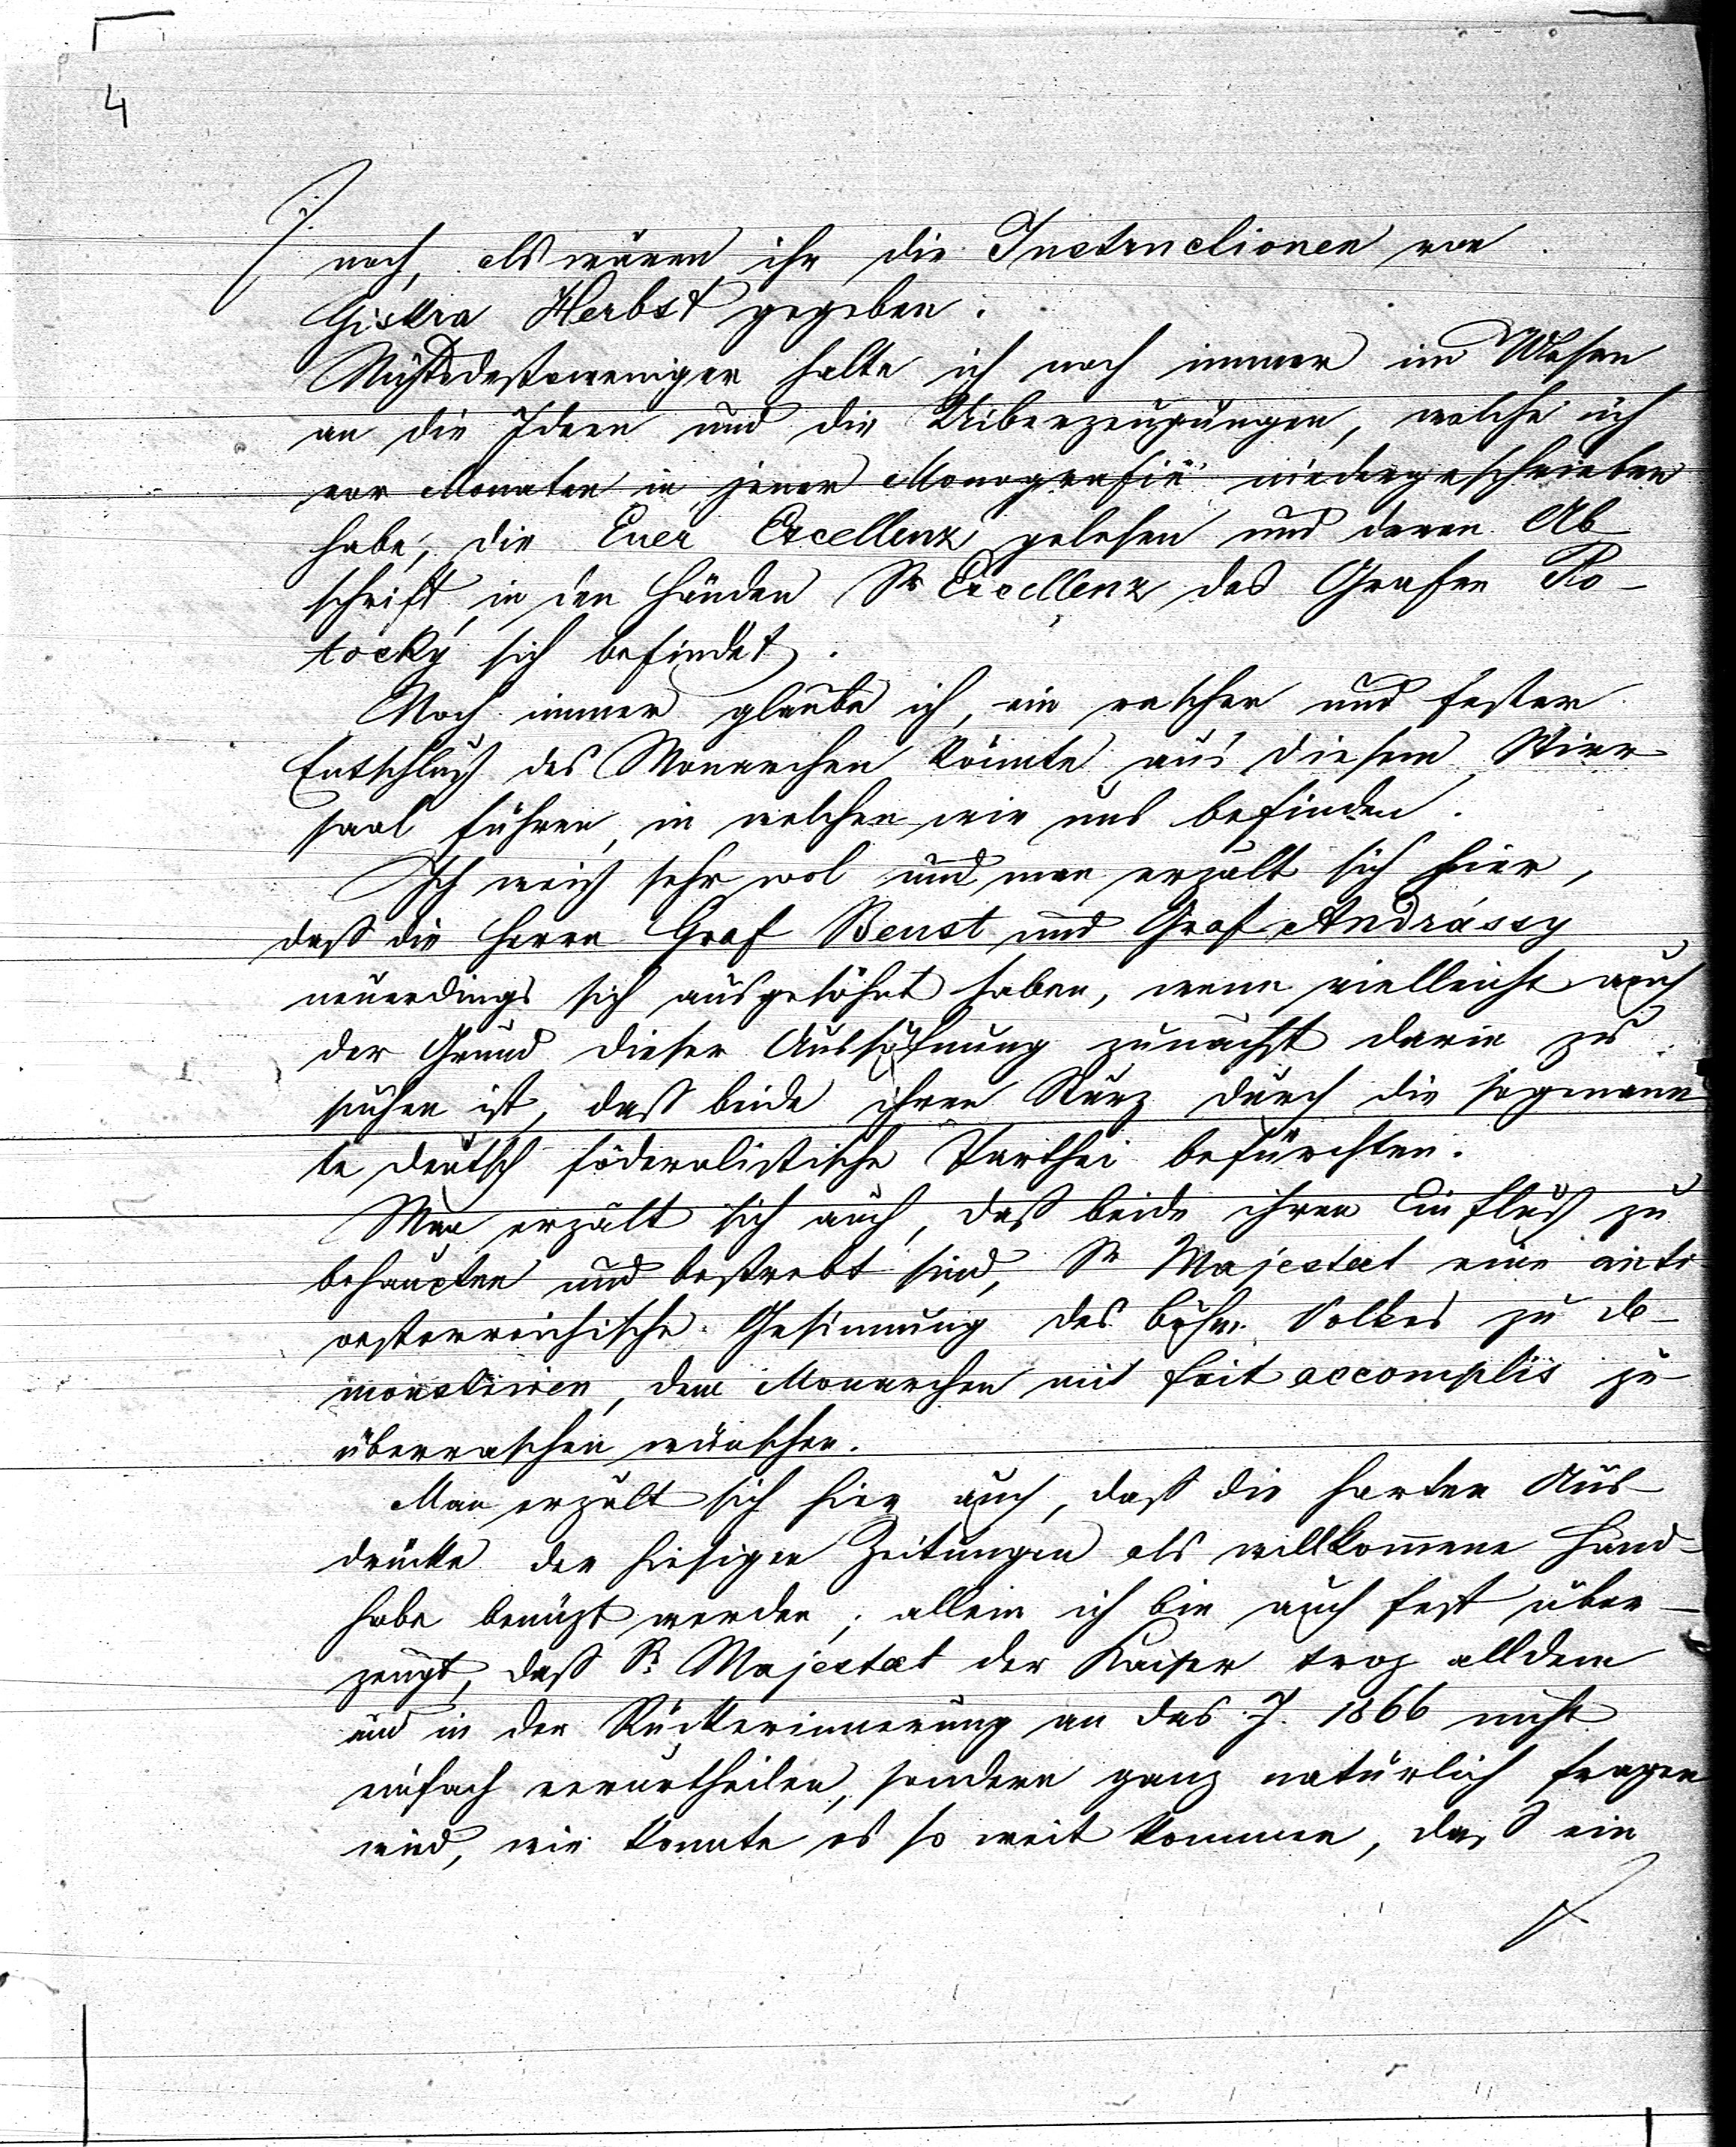 4
noch, als wären ihr die Instructionen von
Giskra Herbst gegeben.
Nichtsdestoweniger halte ich noch immer im Wesen
an die Ideen und die Uiberzeugungen, welche ich
vor Monaten in jener Monografie niedergeschrieben
habe, die Euer Excellenz gelesen und deren Ab
schrift in den Händen Sr Excellenz des Grafen Po-
tocky sich befindet.
Noch immer glaube ich, ein rascher und fester
Entschluß des Monarchen könnte aus diesem Wirr
saal führen, in welchen wir uns befinden.
Ich weiß sehr wol und man erzält sich hier,
daß die Herrn Graf Beust und Graf Andrássy
neuerdings sich ausgesöhnt haben, wenn vielleicht auch
der Grund dieser Aussöhnung zunächst darin zu
suchen ist, daß beide ihren Sturz durch die sogenann
te deutsch föderalistische Parthei befürchten.
Man erzält sich auch, daß beide ihren Einfluß zu
behaupten und bestrebt sind, Sr Majestaet eine anti
oesterreichische Gesinnung des böhm. Volkes zu de-
monstriren, dem Monarchen mit fait accomplis zu
überraschen wünschen.
Man erzält sich hier auch, daß die harten Aus-
drücke der hiesigen Zeitungen als willkommene Hand-
habe benüzt werden; allein ich bin auch fest über-
zeugt, daß Sr. Majestaet der Kaiser troz alldem
und in der Rückerinnerung an das J. 1866 nicht
einfach verurtheilen, sondern ganz natürlich fragen
wird, wie konnte es so weit kommen, daß ein